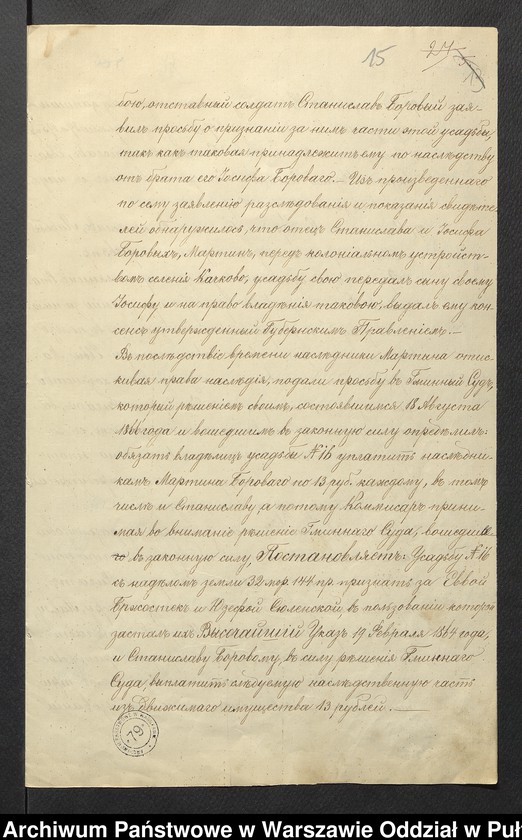 15
27
бою, отставный солдатъ Станиславъ Боровый зая-
вилъ просьбу о признаніи за нимъ части этой усадьбы,
такъ какъ таковая принадлежитъ ему по наслѣдству
отъ брата его Іосифа Бороваго. — Изъ произведеннаго
по сему заявленію разслѣдованія и показанія свидѣте-
лей обнаружилось, что отецъ Станислава и Іосифа
Боровыхъ, Мартинъ, передъ колоніальномъ устройст-
вомъ селенія Качково, усадьбу свою передалъ сыну своему
Іосифу и на право владѣнія таковою, выдалъ ему кон-
сенсъ утвержденный Губернскимъ Правленіемъ. —
Въ послѣдствіе времени наслѣдники Мартина отыс-
кивая права наслѣдія, подали просьбу въ Гминный Судъ,
который рѣшеніемъ своимъ, состоявшимся 18 Августа
1866 года и вошедшимъ въ законную силу опредѣлилъ:
обязать владѣлицъ усадьбы № 16 уплатить наслѣдни-
камъ Мартина Бороваго по 13 руб. каждому, въ томъ
числѣ и Станиславу, а потому Коммисаръ прини-
мая во вниманіе рѣшеніе Гминнаго Суда, вошедша-
го въ законную силу, Постановляетъ: Усадьбу № 16
съ надѣломъ земли 32 мор. 144 пр. признать за Еввой
Бржостекъ и Юзефой Сюленской, въ пользованіи которой
засталъ ихъ Высочайшій Указъ 19 Февраля 1864 года,
и Станиславу Боровому, въ силу рѣшенія Гминнаго
Суда, выплатить слѣдуемую наслѣдственную часть
изъ движимаго имущества 13 рублей. —
79
Archiwum Państwowe w Warszawie Oddział w Puł